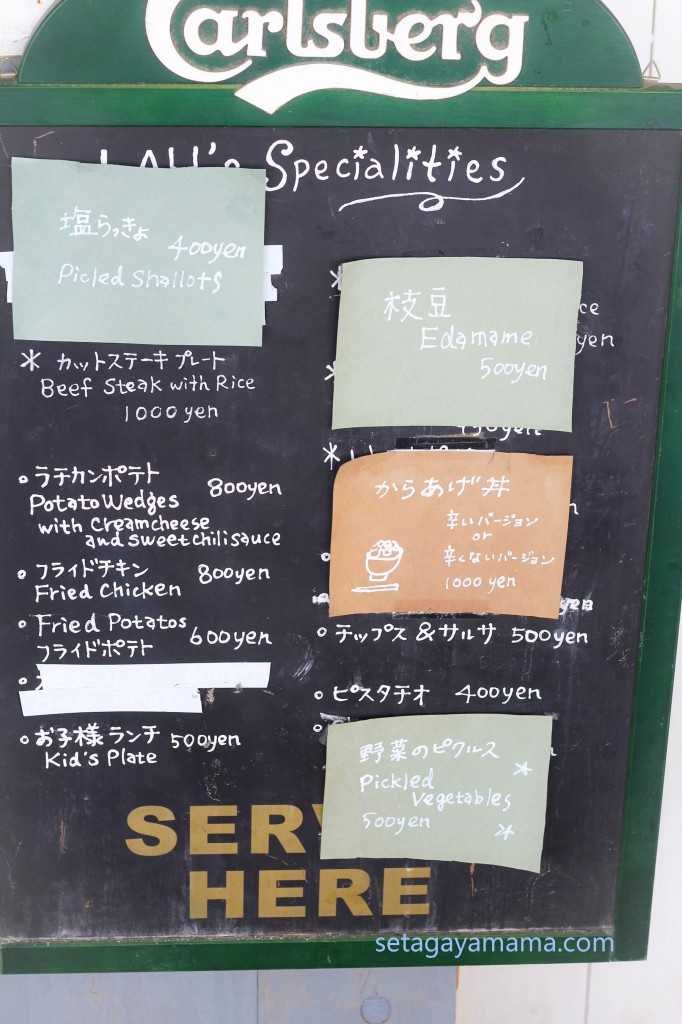 Carlsberg
Specialities
塩らっきょ
400yen
Picled Shallots
* カットステーキ プレート
Beef Steak with Rice
1000 yen
ラチカンポテト
Potato Wedges 800yen
with Creamcheese
and sweetchili sauce
フライドチキン 800yen
Fried Chicken
Fried Potatos
フライドポテト 600yen
お子様ランチ 500yen
Kid's Plate
枝豆
Edamame
500yen
yen
からあげ丼
辛いバージョン
or
辛くないバージョン
1000 yen
チップス &サルサ 500yen
ピスタチオ 400yen
野菜のピクルス
Pickled
Vegetables
500yen
HERE
setagayamama.com